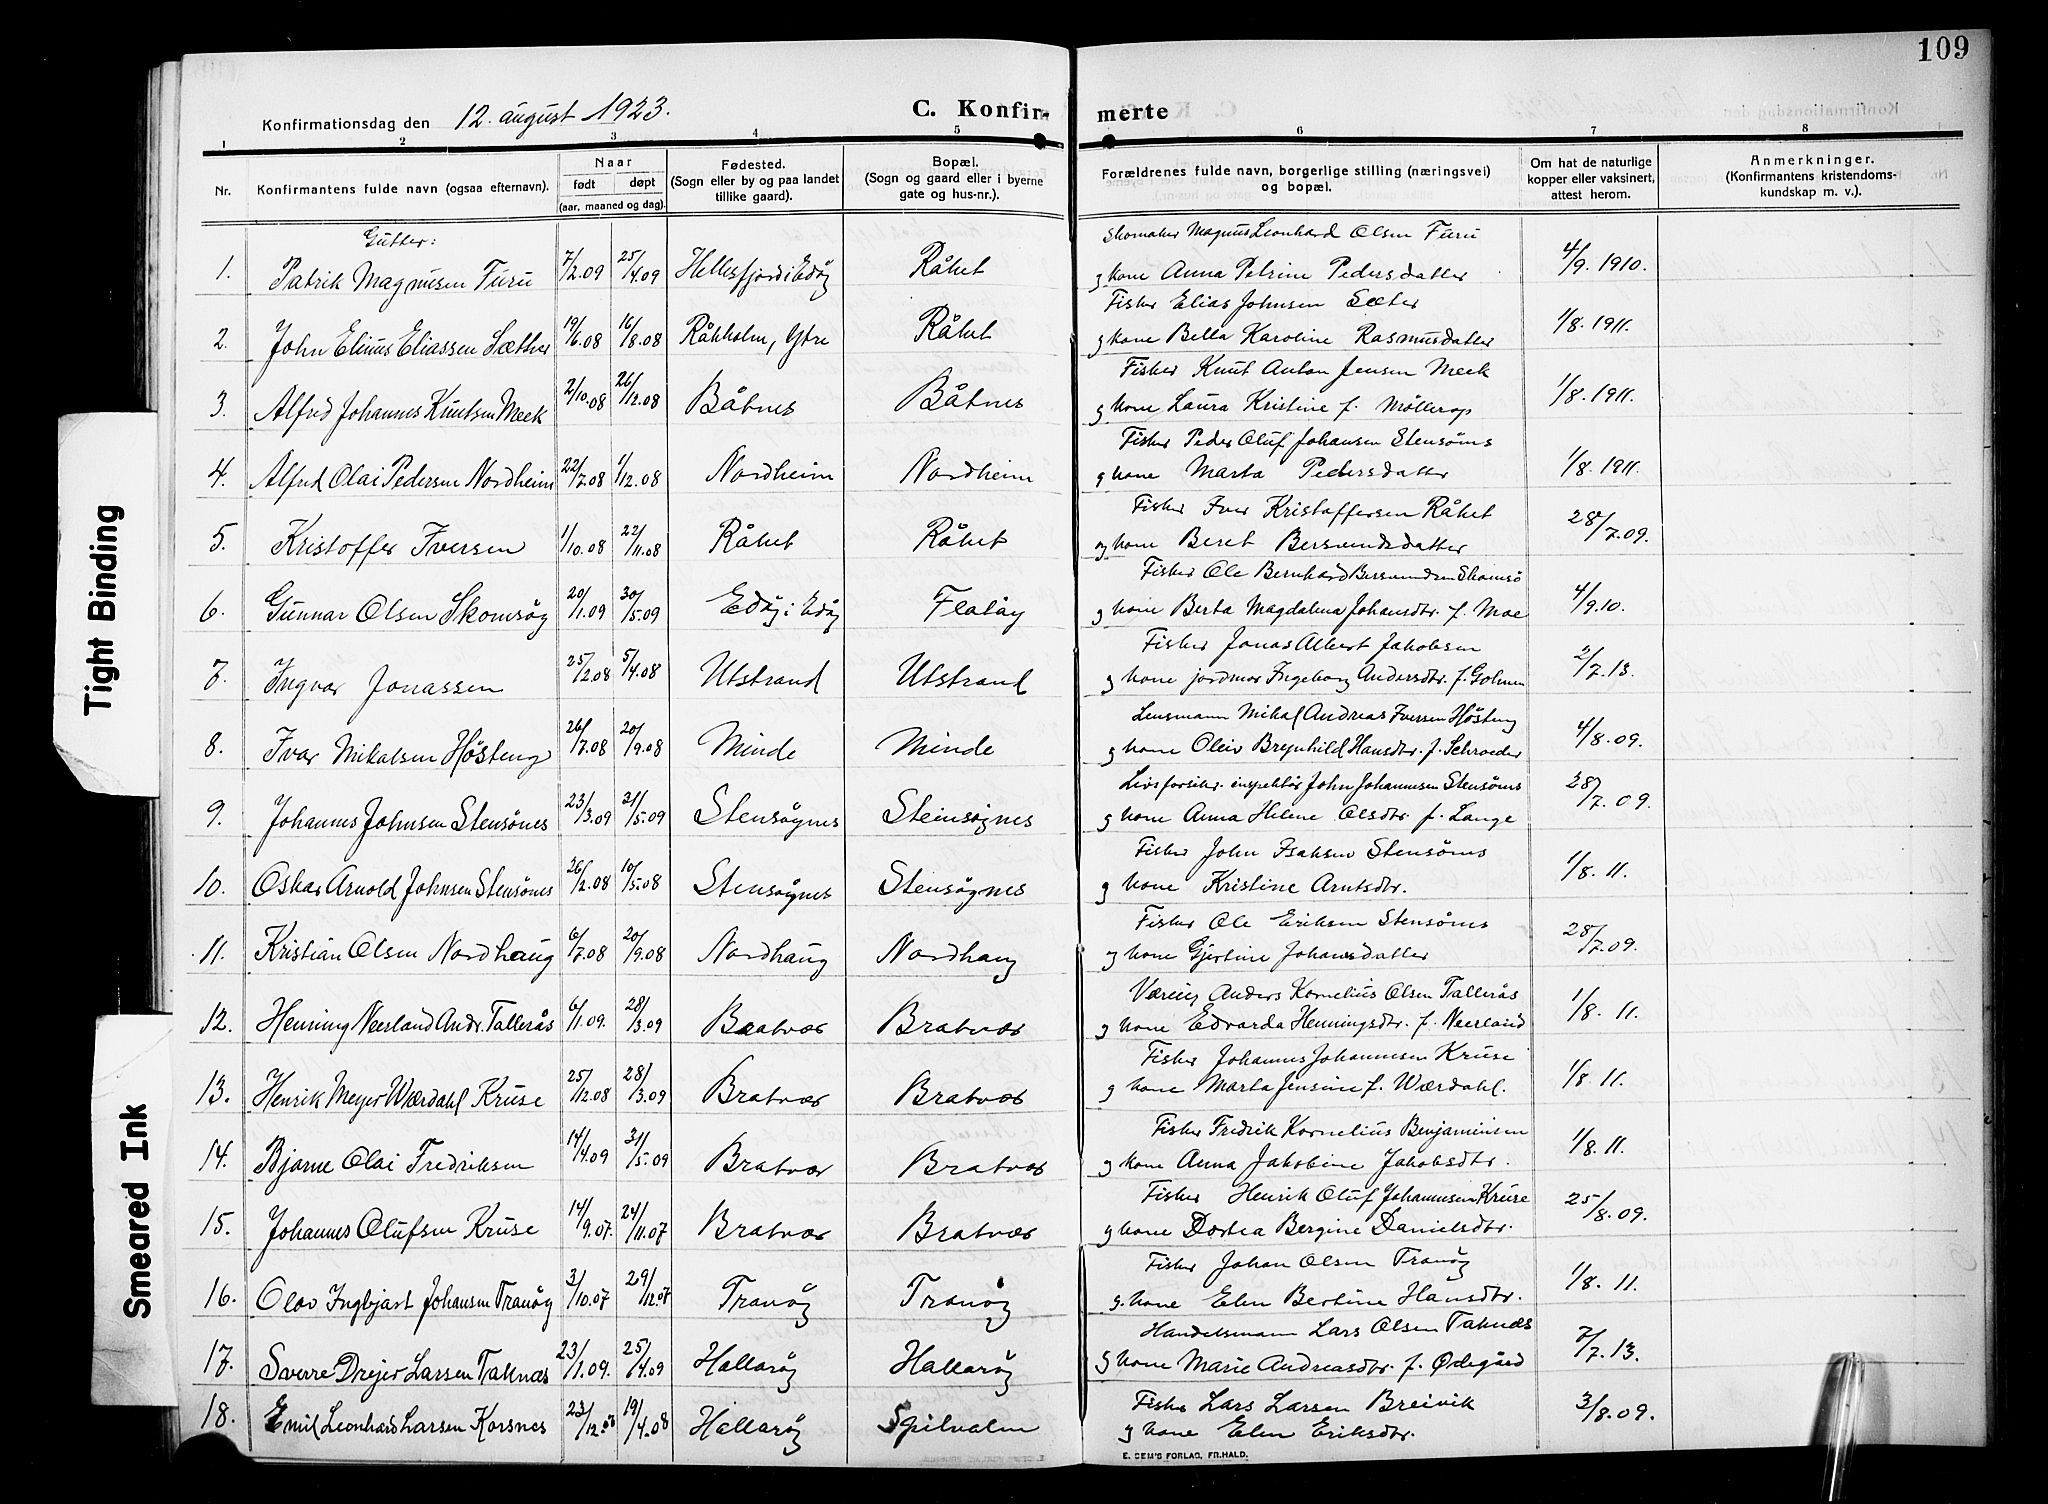 109
Konfirmationsdag den 12. august 1923. C. Konfir- merte
1 2 3 4 5 6 7 8
Nr. Konfirmantens fulde navn (ogsaa efternavn). Naar født døpt (aar, maaned og dag). Fødested. (Sogn eller by og paa landet tillike gaard). Bopæl. (Sogn og gaard eller i byerne gate og hus-nr.). Forældrenes fulde navn, borgerlige stilling (næringsvei) og bopæl. Om hat de naturlige kopper eller vaksinert, attest herom. Anmerkninger. (Konfirmantens kristendoms-kundskap m. v.).
Gutter:
Skomaker Magnus Leonhard Olsen Furu
1. Patrik Magnusen Furu 7/2.09 25/4.09 Hellesfjord i Edøy Råket g kone Anna Petrine Pedersdatter 4/9.1910.
Fisker Elias Johnsen Sæter
2. John Elius Eliassen Sætther 19/6.08 16/8.08 Råkholm, Ytre Råket g kone Bella Karoline Rasmusdatter 1/8.1911.
Fisker Knut Anton Jensen Meek
3. Alfred Johannes Knutsen Meek 2/10.08 26/12.08 Båtnes Båtnes g kone Laura Kristine f. Møllerop 1/8.1911.
Fisker Peder Oluf Johansen Stensönes
4. Alfred Olai Pedersen Nordheim 22/7.08 1/12.08 Nordheim Nordheim g kone Marta Pedersdatter 1/8.1911.
Fisker Iver Kristoffersen Råket
5. Kristoffer Iversen 1/10.08 22/11.08 Råket Råket og kone Beret Bersvendsdatter 28/7.09.
Fisker Ole Bernhard Bersvendsen Skomsö
6. Gunnar Olsen Skomsøy 20/1.09 30/5.09 Edøy i Edøy Flatøy g kone Berta Magdalena Johansdtr. f. Moe 4/9.10.
Fisker Jonas Albert Jakobsen
7. Ingvar Jonassen 25/2.08 5/4.08 Utstrand Utstrand g kone jordmor Ingeborg Andersdtr. f. Golmen 2/7.13.
Lensmann Mikal Andreas Iversen Høsteng
8. Ivar Mikalsen Høsteng 26/7.08 20/9.08 Minde Minde g kone Oleiv Brynhild Hansdtr. f. Schrøeder 4/8.09.
Livsforsikr. inspektör John Johannesen Stensönes
9. Johannes Johnsen Stensönes 23/3.09 31/5.09 Stensøynes Steinsøynes g kone Anna Helene Olsdtr. f. Lange 28/7.09.
Fisker John Isaksen Stensönes
10. Oskar Arnold Johnsen Stensönes 26/2.08 10/5.08 Stensøynes Stensøynes g kone Kristine Arntsdtr. 1/8.11.
Fisker Ole Eriksen Stensönes
11. Kristian Olsen Nordhaug 6/7.08 20/9.08 Nordhaug Nordhaug og kone Gjertine Johansdatter 28/7.09.
Væreig. Anders Kornelius Olsen Tallerås
12. Henning Neerland Andr. Tallerås 6/1.09. 28/3.09 Bratvær Bratvær g kone Edvarda Henningsdtr. f. Neerland 1/8.11.
Fisker Johannes Johannesen Kruse
13. Henrik Meyer Wærdahl Kruse 25/12.08 28/3.09 Bratvær Bratvær g kone Marta Jensine f. Wærdahl. 1/8.11.
Fisker Fredrik Kornelius Benjaminsen
14. Bjarne Olai Fredriksen 14/4.09 31/5.09 Bratvær Bratvær g kone Anna Jakobine Jakobsdtr. 1/8.11.
Fisker Henrik Oluf Johannesen Kruse
15. Johannes Olufsen Kruse 14/9.07. 24/11.07 Bratvær Bratvær g kone Dortea Bergine Danielsdtr. 25/8.09.
Fisker Johan Olsen Tranøy
16. Olav Ingbjart Johansen Tranøy 3/10.07 29/12.07 Tranøy Tranøy g. kone Elen Bertine Hansdtr. 1/8.11.
Handelsmann Lars Olsen Taknæs
17. Sverre Drejer Larsen Taknæs 23/1.09. 25/4.09 Hallarøy Hallarøy g kone Marie Andreasdtr. f. Ødegård 7/7.13.
Fisker Lars Larsen Breivik
18. Emil Leonhard Larsen Korsnes 23/12. 19/4.08 Hallarøy Spilvalm g kone Elen Eriksdtr. 3/8.09.
E. SEM'S FORLAG, FR.HALD.
Tight Binding
Smeared Ink